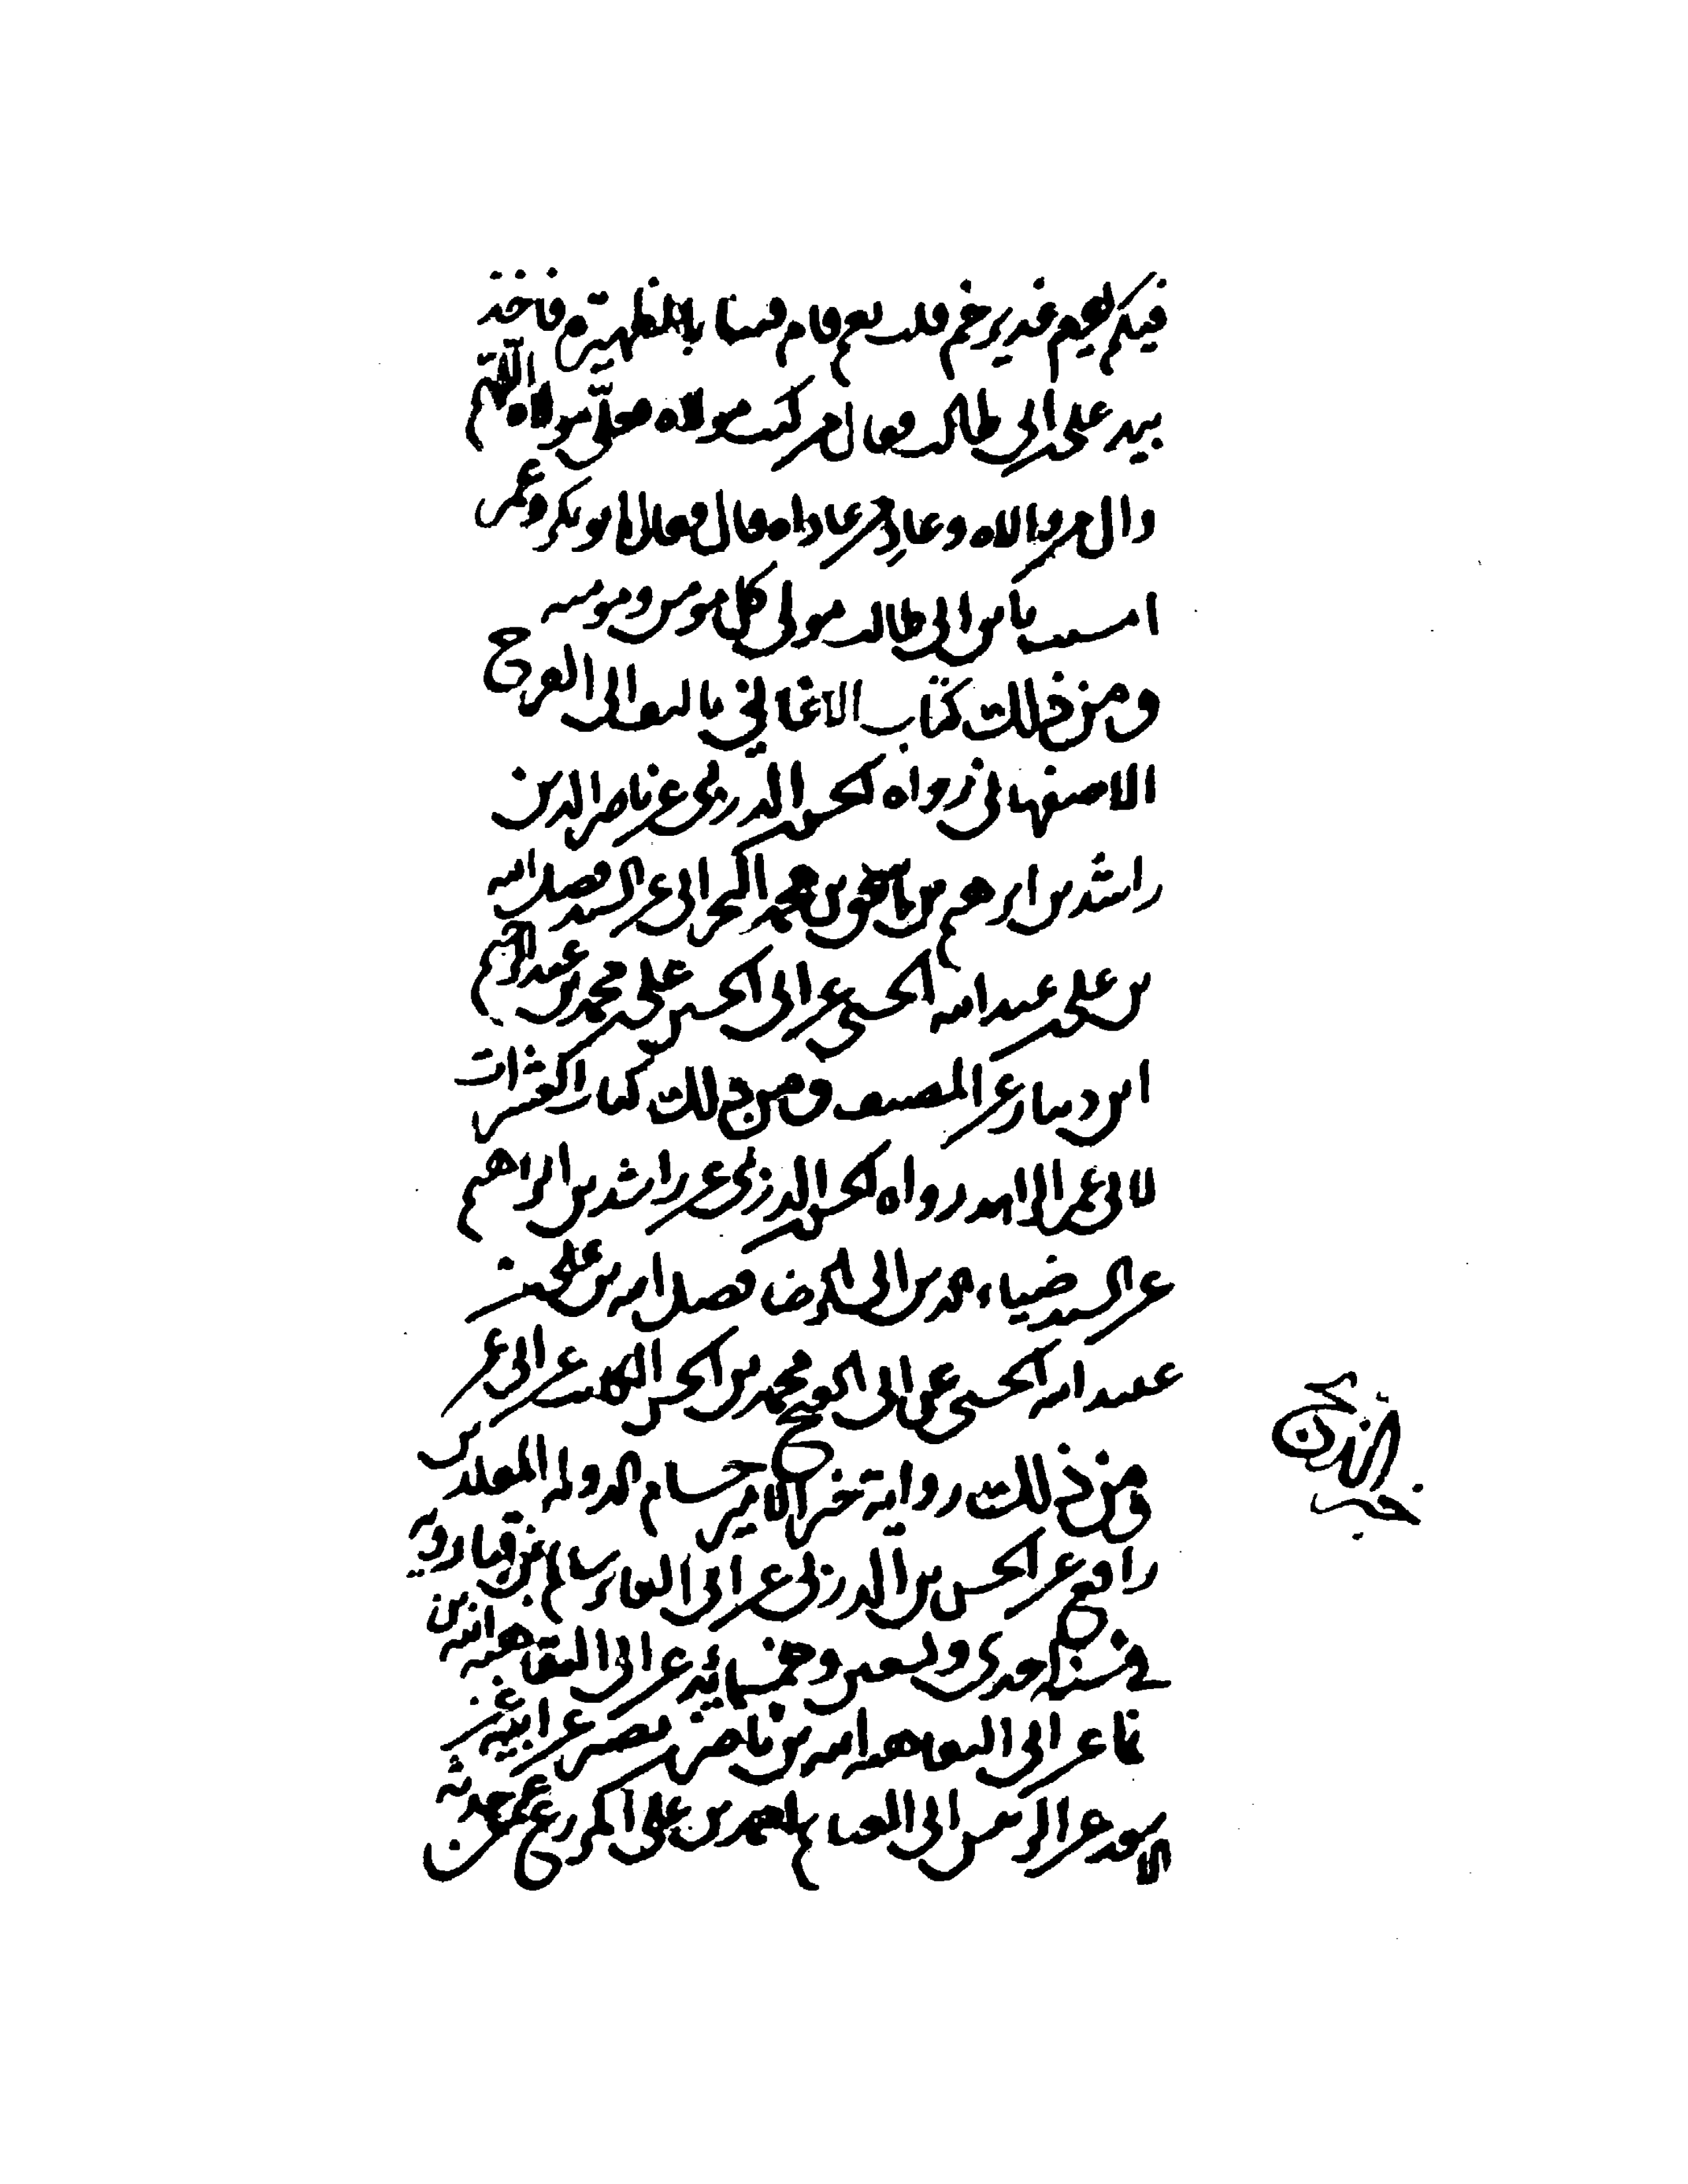 فيكم يوم غدير خم قلت نعم قام فينا بالظهيرة فاخذ
بيد على بن ابى طالب فقال من كنت مولاه فعلى مولاه اللهم
وال من والاه وعاد من عاداه قال فقال ابو بكر وعمر
امسيت يابن ابى طالب مولى كل مومن ومومنه
ومن ذلك كتاب الاغاني تاليف ابى الفرج
الاصفهاني رواه الحسن بن الدربى عن ناصر الدين
راشد بن ابرهيم بن اسحق بن محمد البحرانى عن السيد فضل الله
بن على بن عبد الله الحسنى عن ابى الحسن على بن محمد بن عبد الرحيم
ابن دينار عن المصنف ومن ذلك كتاب
لابى عمر الزاهد رواه الحسن بن الدربى عن راشد بن ابراهيم
عن السيد ضياء الدين ابى الرضا فضل الله بن على بن
عبيد الله الحسنى عن ابى الفتح محمد بن الحسن الكاتب عن ابى عمر
ومن ذلك رواية خبر الامير حسام الدولة المقلد بن
رافع عن الحسن بن الدربى عن ابى البقا
فى سنة احدى وتسعين وخمسمائة عن ابى البقا هبة الله بن
نما عن ابى البقا هبة الله بن ناصر بن نصير عن ابيه عن
الاسعد عن الرئيس ابى البقا احمد بن على المزرع عمن حدثه